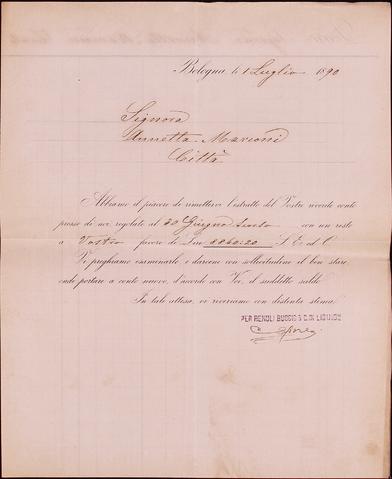 Bologna, li 1 Luglio 1890
Signora
Annetta Marconi
Città
Abbiamo il piacere di rimettervi l'estratto del Vostro ricordo conto
presso di noi regolato al 30 Giugno scorso con un resto
a Vostro favore di Lire 8860:20 S. E. ed O.
Vi preghiamo esaminarlo e darcene con sollecitudine il ben stare
onde portare a conto nuovo, d'accordo con Voi, il suddetto saldo.
In tale attesa, vi riveriamo con distinta stima.
PER RENOLI BUGGIO & C. IN LIQUID